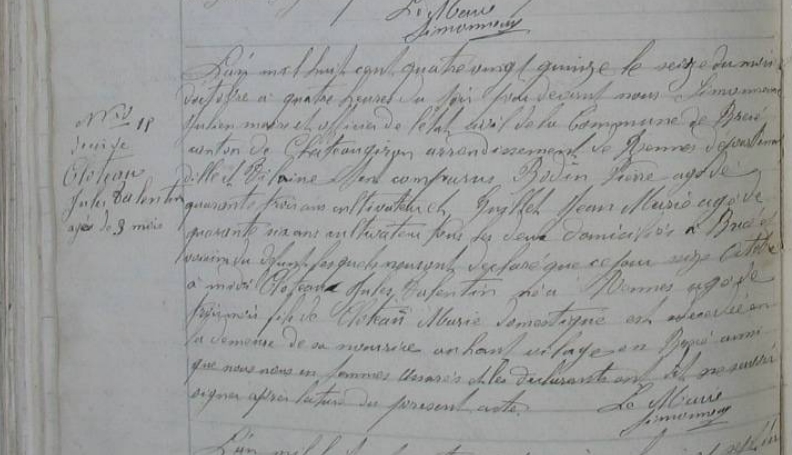 Le Maire
Simonneau
L'an mil huit cent quatre vingt quinze le seize du mois
d'octobre à quatre heures du soir par devant nous Simonneau
Julien maire et officier de l'état civil de la Commune de Brecé
canton de Châteaugiron arrondissement de Rennes département
d'Ille et Vilaine en comparus Bodin Pierre agé de
quarante trois ans cultivateur et Guillet Jean Marie agé de
quarante six ans cultivateur tous les deux domiciliés à Brecé et
voisin du défunt lesquels nous ont declaré que ce jour seize Octobre
à midi Cloteau Jules Valentin né à Rennes agé de
trois mois fils de Cloteau Marie domestique est décédé en
la demeure de sa nourrice au haut village en Brecé ainsi
que nous nous en sommes assurés et les déclarants ont dit ne savoir
signer après lecture du présent acte.
Le Maire
Simonneau
N° 18
Cloteau
Jules Valentin
agé de 3 mois
L'an mil